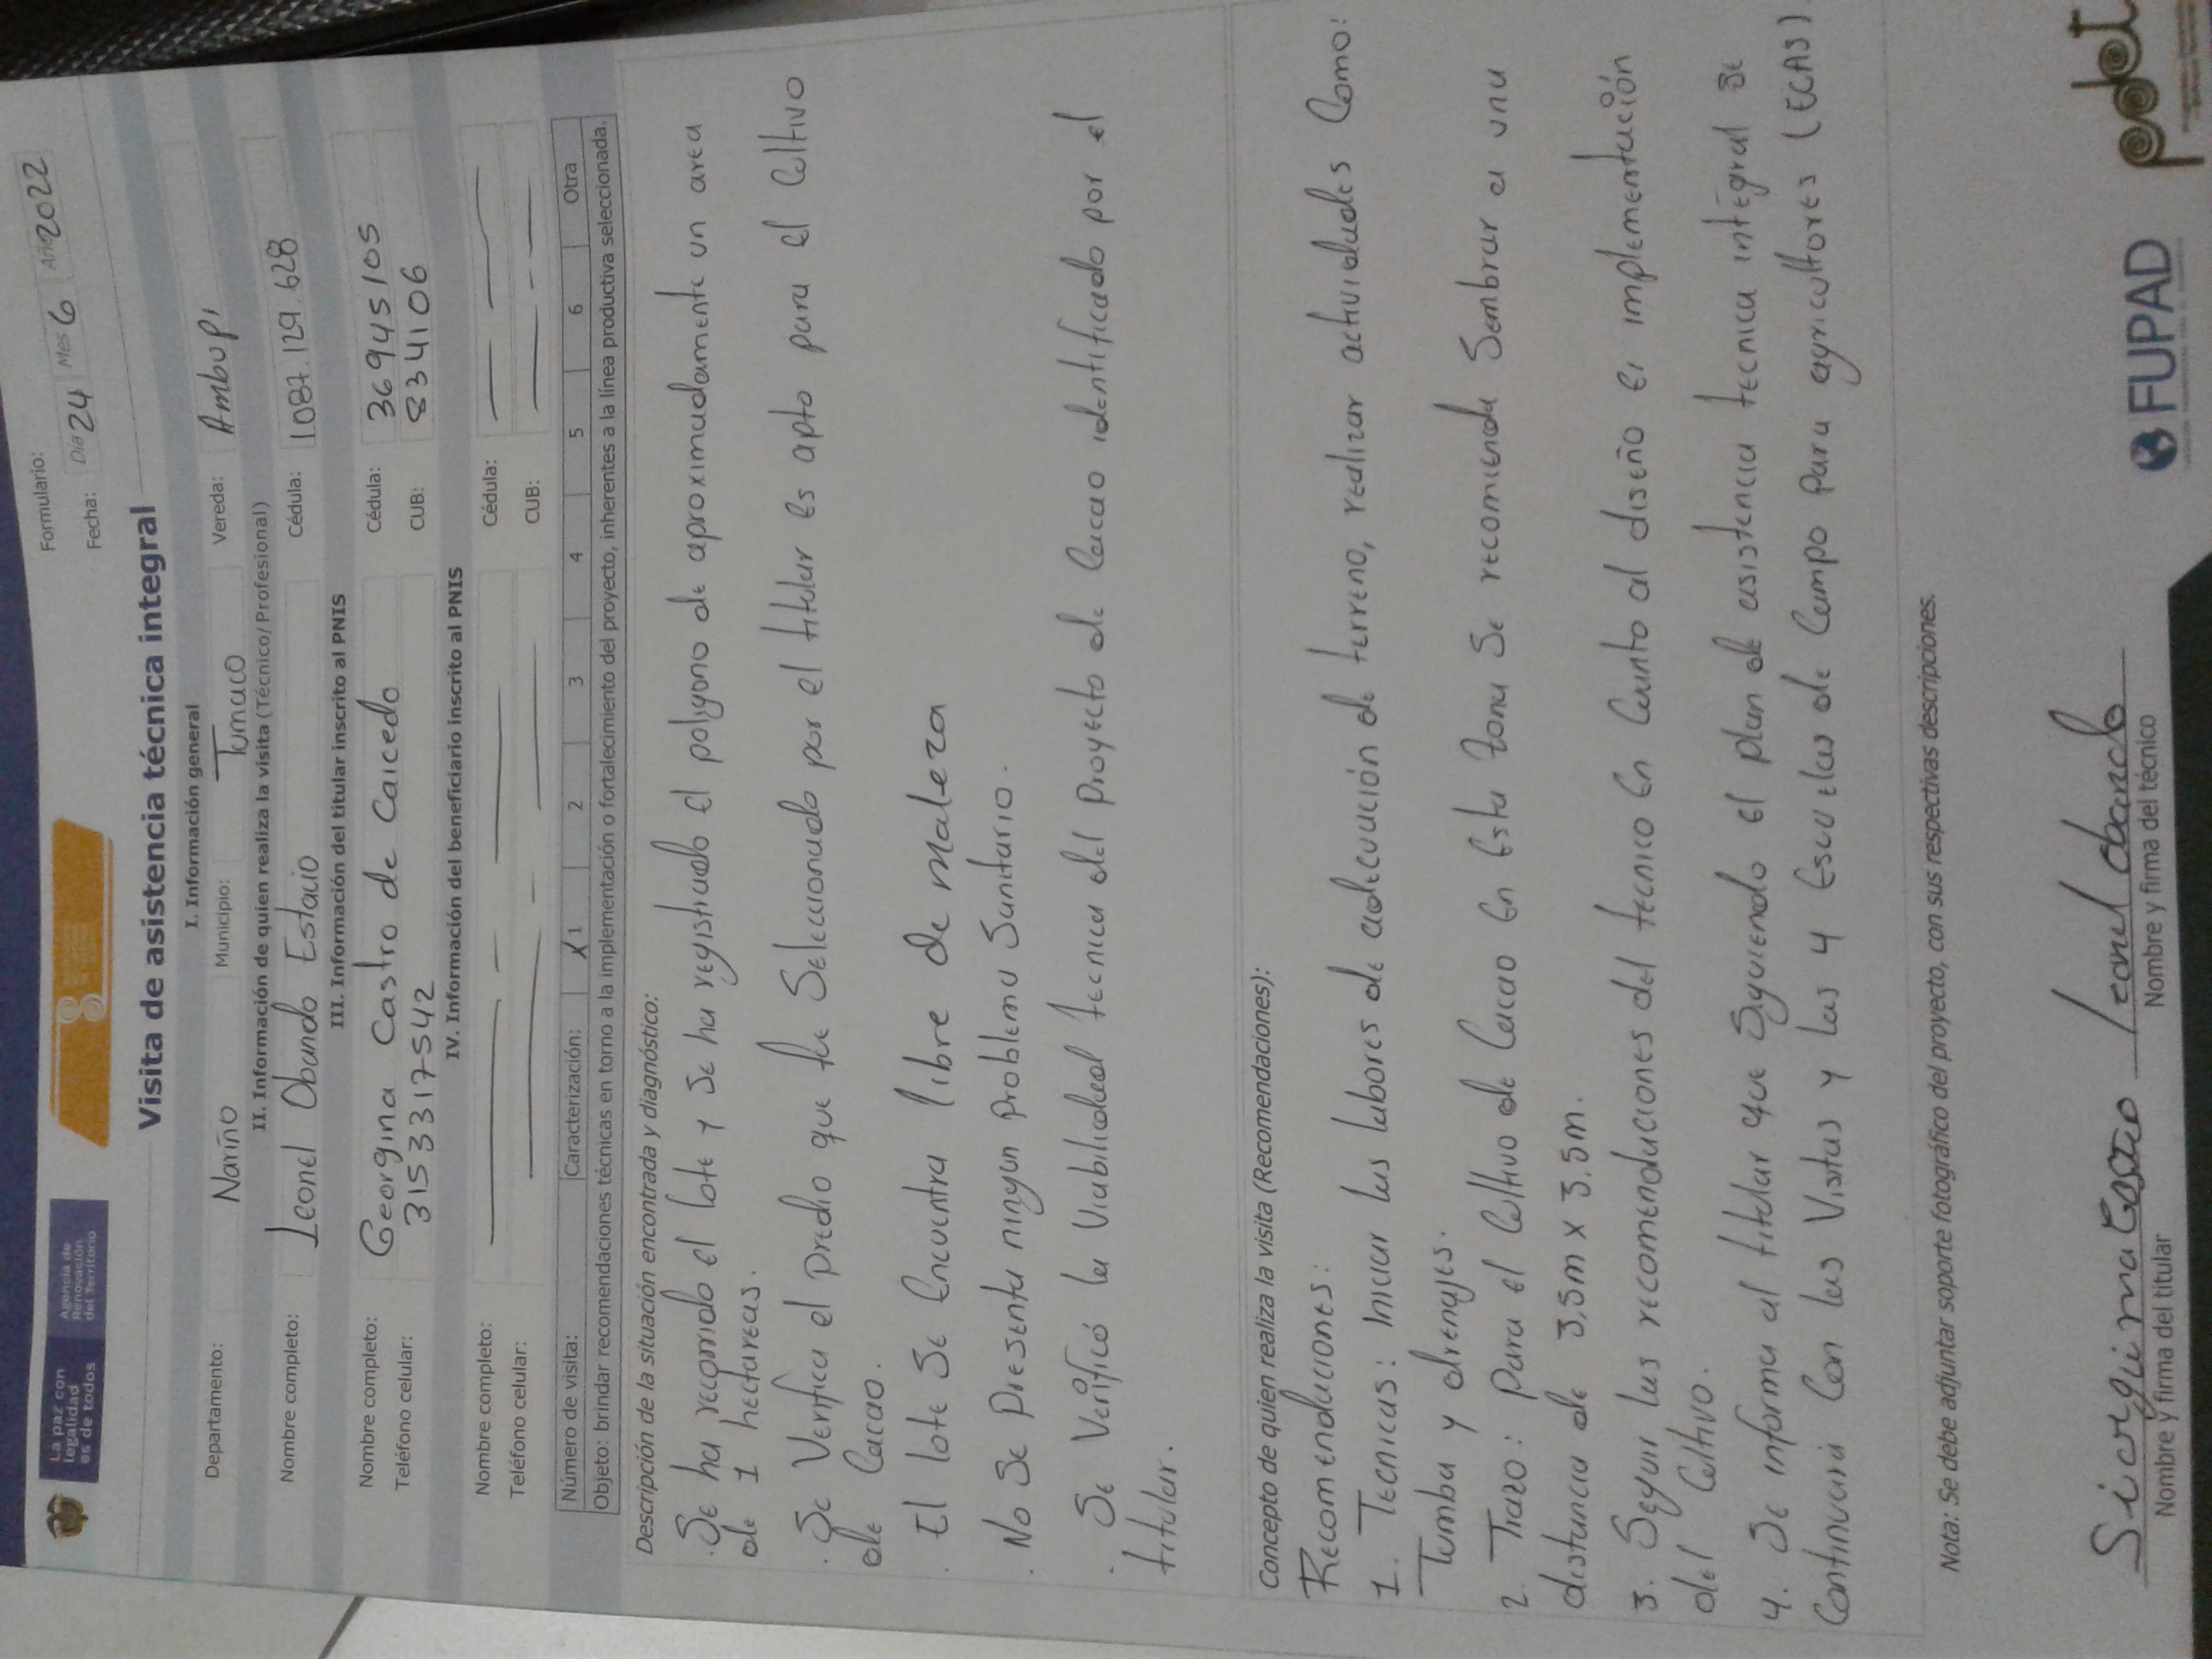 La paz con
legalidad
es de todos
Agencia de
Renovación
del Territorio
Formulario:
Fecha: Día 24 Mes 6 Año 2022
Visita de asistencia técnica integral
I. Información general
Departamento: Nariño Municipio: Tumaco Vereda: Ambupi
II. Información de quien realiza la visita (Técnico/Profesional)
Nombre completo: Leonel Obando Estacio Cédula: 1087.129.628
III. Información del titular inscrito al PNIS
Nombre completo: Georgina Castro de Caicedo Cédula: 36945105
Teléfono celular: 3153317542 CUB: 834106
IV. Información del beneficiario inscrito al PNIS
Nombre completo: Cédula:
Teléfono celular: CUB:
Número de visita: Caracterización: X 1 2 3 4 5 6 Otra
Objeto: brindar recomendaciones técnicas en torno a la implementación o fortalecimiento del proyecto, inherentes a la línea productiva seleccionada.
Descripción de la situación encontrada y diagnóstico:
. Se ha recorrido el lote y se ha registrado el polygono de aproximadamente un area
de 1 hectareas.
. Se Verifica el predio que fue Seleccionado por el titular es apto para el Cultivo
de Cacao.
. El lote Se Encuentra libre de maleza
. No Se Presenta ningun problema Sanitario.
. Se Verificó la Viabilidad tecnica del Proyecto de Cacao identificado por el
titular.
Concepto de quien realiza la visita (Recomendaciones):
Recomendaciones:
1. Tecnicas: Iniciar las labores de adecuación de terreno, realizar actividades Como:
Tumba y drenajes.
2. Trazo: Para el Cultivo de Cacao En Esta Zona Se recomienda Sembrar a una
distancia de 3,5m x 3.5m.
3. Seguir las recomendaciones del tecnico En Cuanto al diseño e implementación
del Cultivo.
4. Se informa al titular que Siguiendo el plan de asistencia tecnica integral Se
Continuará Con las Vistas y las 4 Escuelas de Campo Para agricultores (ECAS).
Nota: Se debe adjuntar soporte fotográfico del proyecto, con sus respectivas descripciones.
Leonel Obando
Nombre y firma del titular Nombre y firma del técnico
FUPAD
pdet